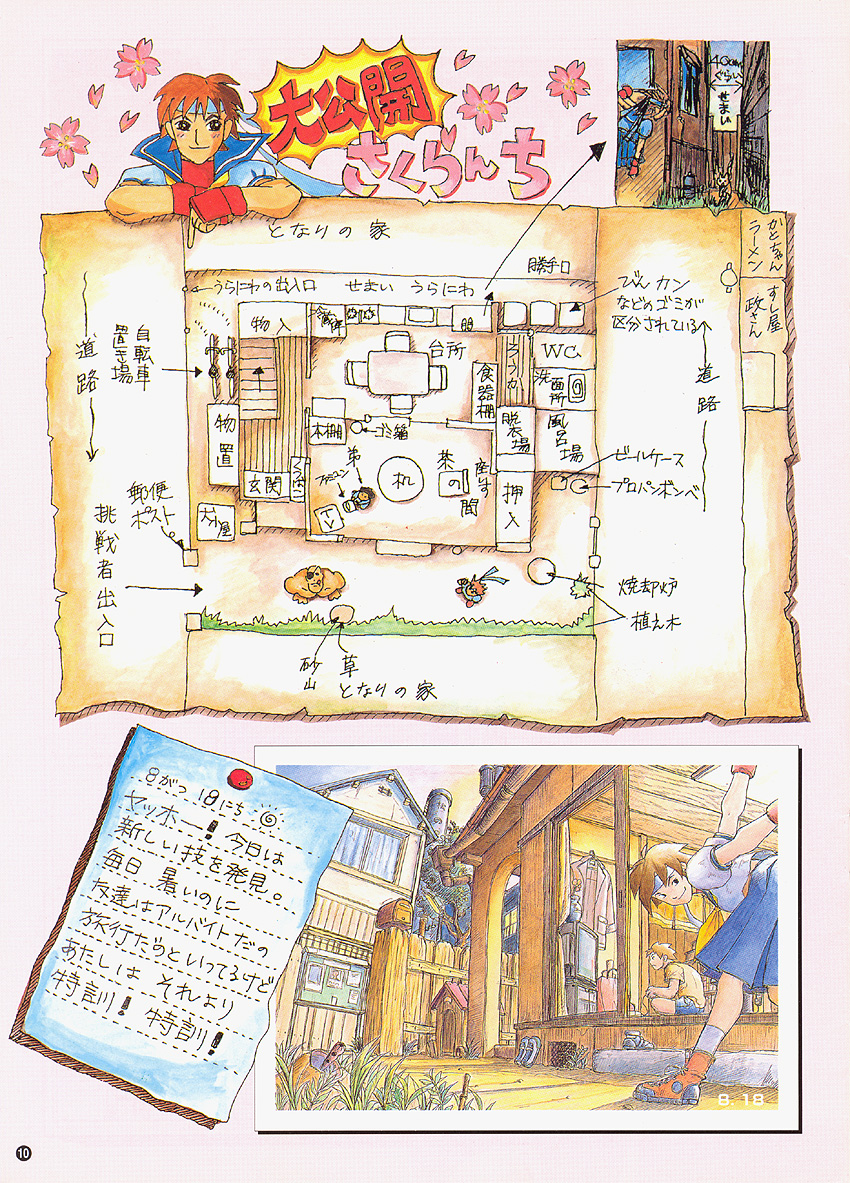 大公開
さくらんち
40cm
ぐらい
せまい
となりの家
勝手口
うらにわの出入口
せまい うらにわ
びん カン
などのゴミが
区分されている
かとちゃん
ラーメン
すし屋
政さん
道路
自転車
置き場
物入
冷蔵庫
台所
食器棚
ろうか
WC
洗面所
脱衣場
風呂場
道路
物置
本棚
ゴミ箱
玄関
くつばこ
ファミコン
弟
机
茶の間
座いす
押入
ビールケース
プロパンボンベ
郵便
ポスト
犬小屋
TV
挑戦者出入口
焼却炉
植え木
砂山
草
となりの家
8がつ 18にち
ヤッホー! 今日は
新しい技を発見。
毎日 暑いのに
友達はアルバイトだの
旅行だのといってるけど
あたしは それより
特訓! 特訓!
8.18
10